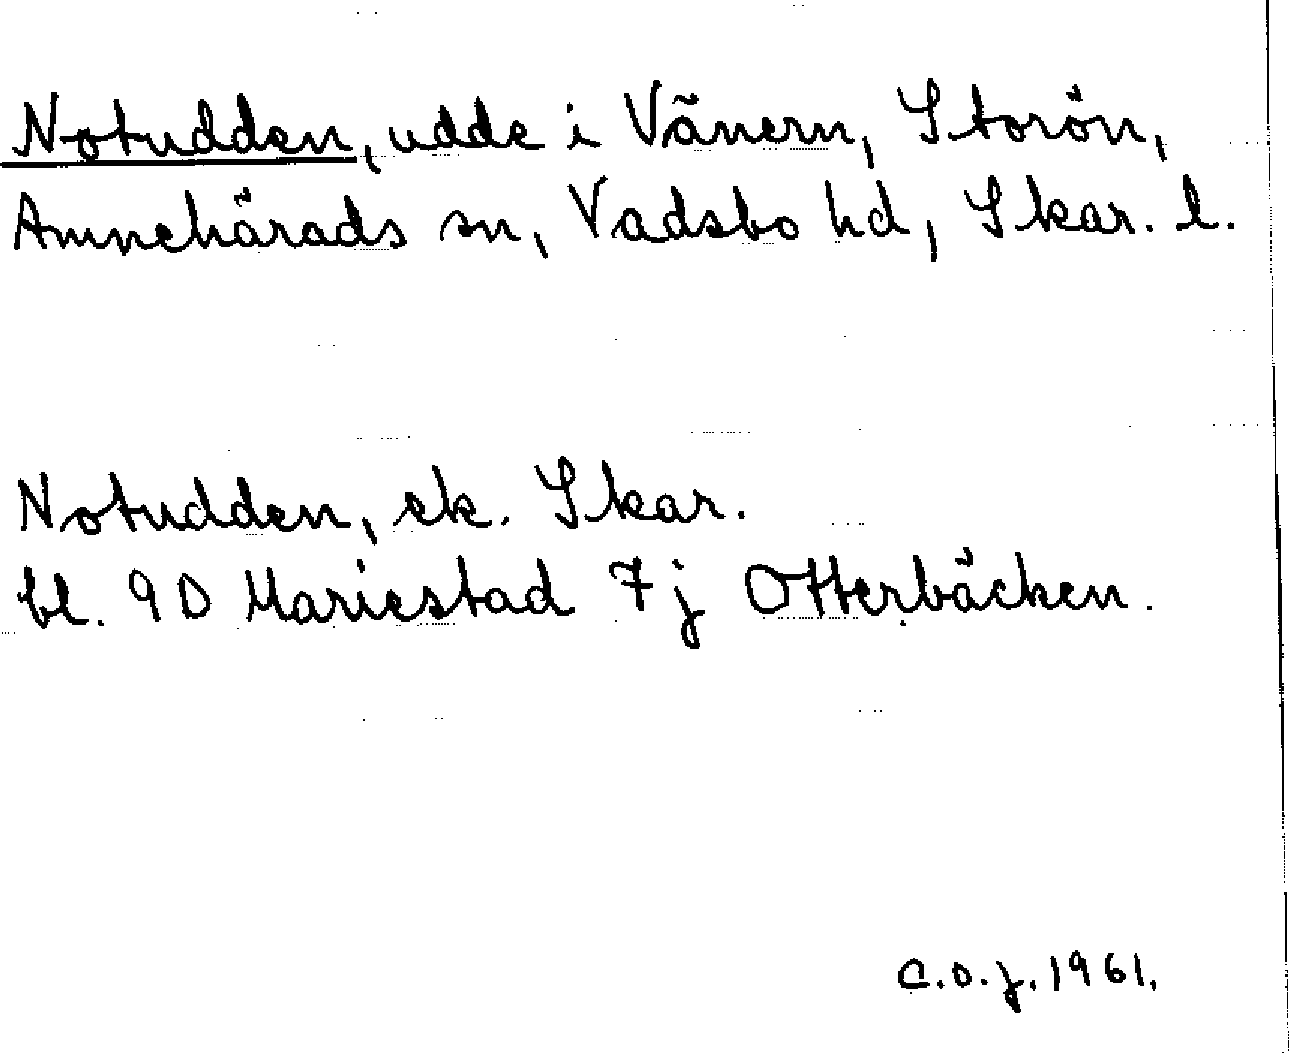 Notudden, udde i Vänern, Storön,
Amnehärads sn, Vadsbo hd, Skar. l.
Notudden, ek. Skar.
bl. 9D Mariestad 7j Otterbäcken.
C.O.J. 1961.